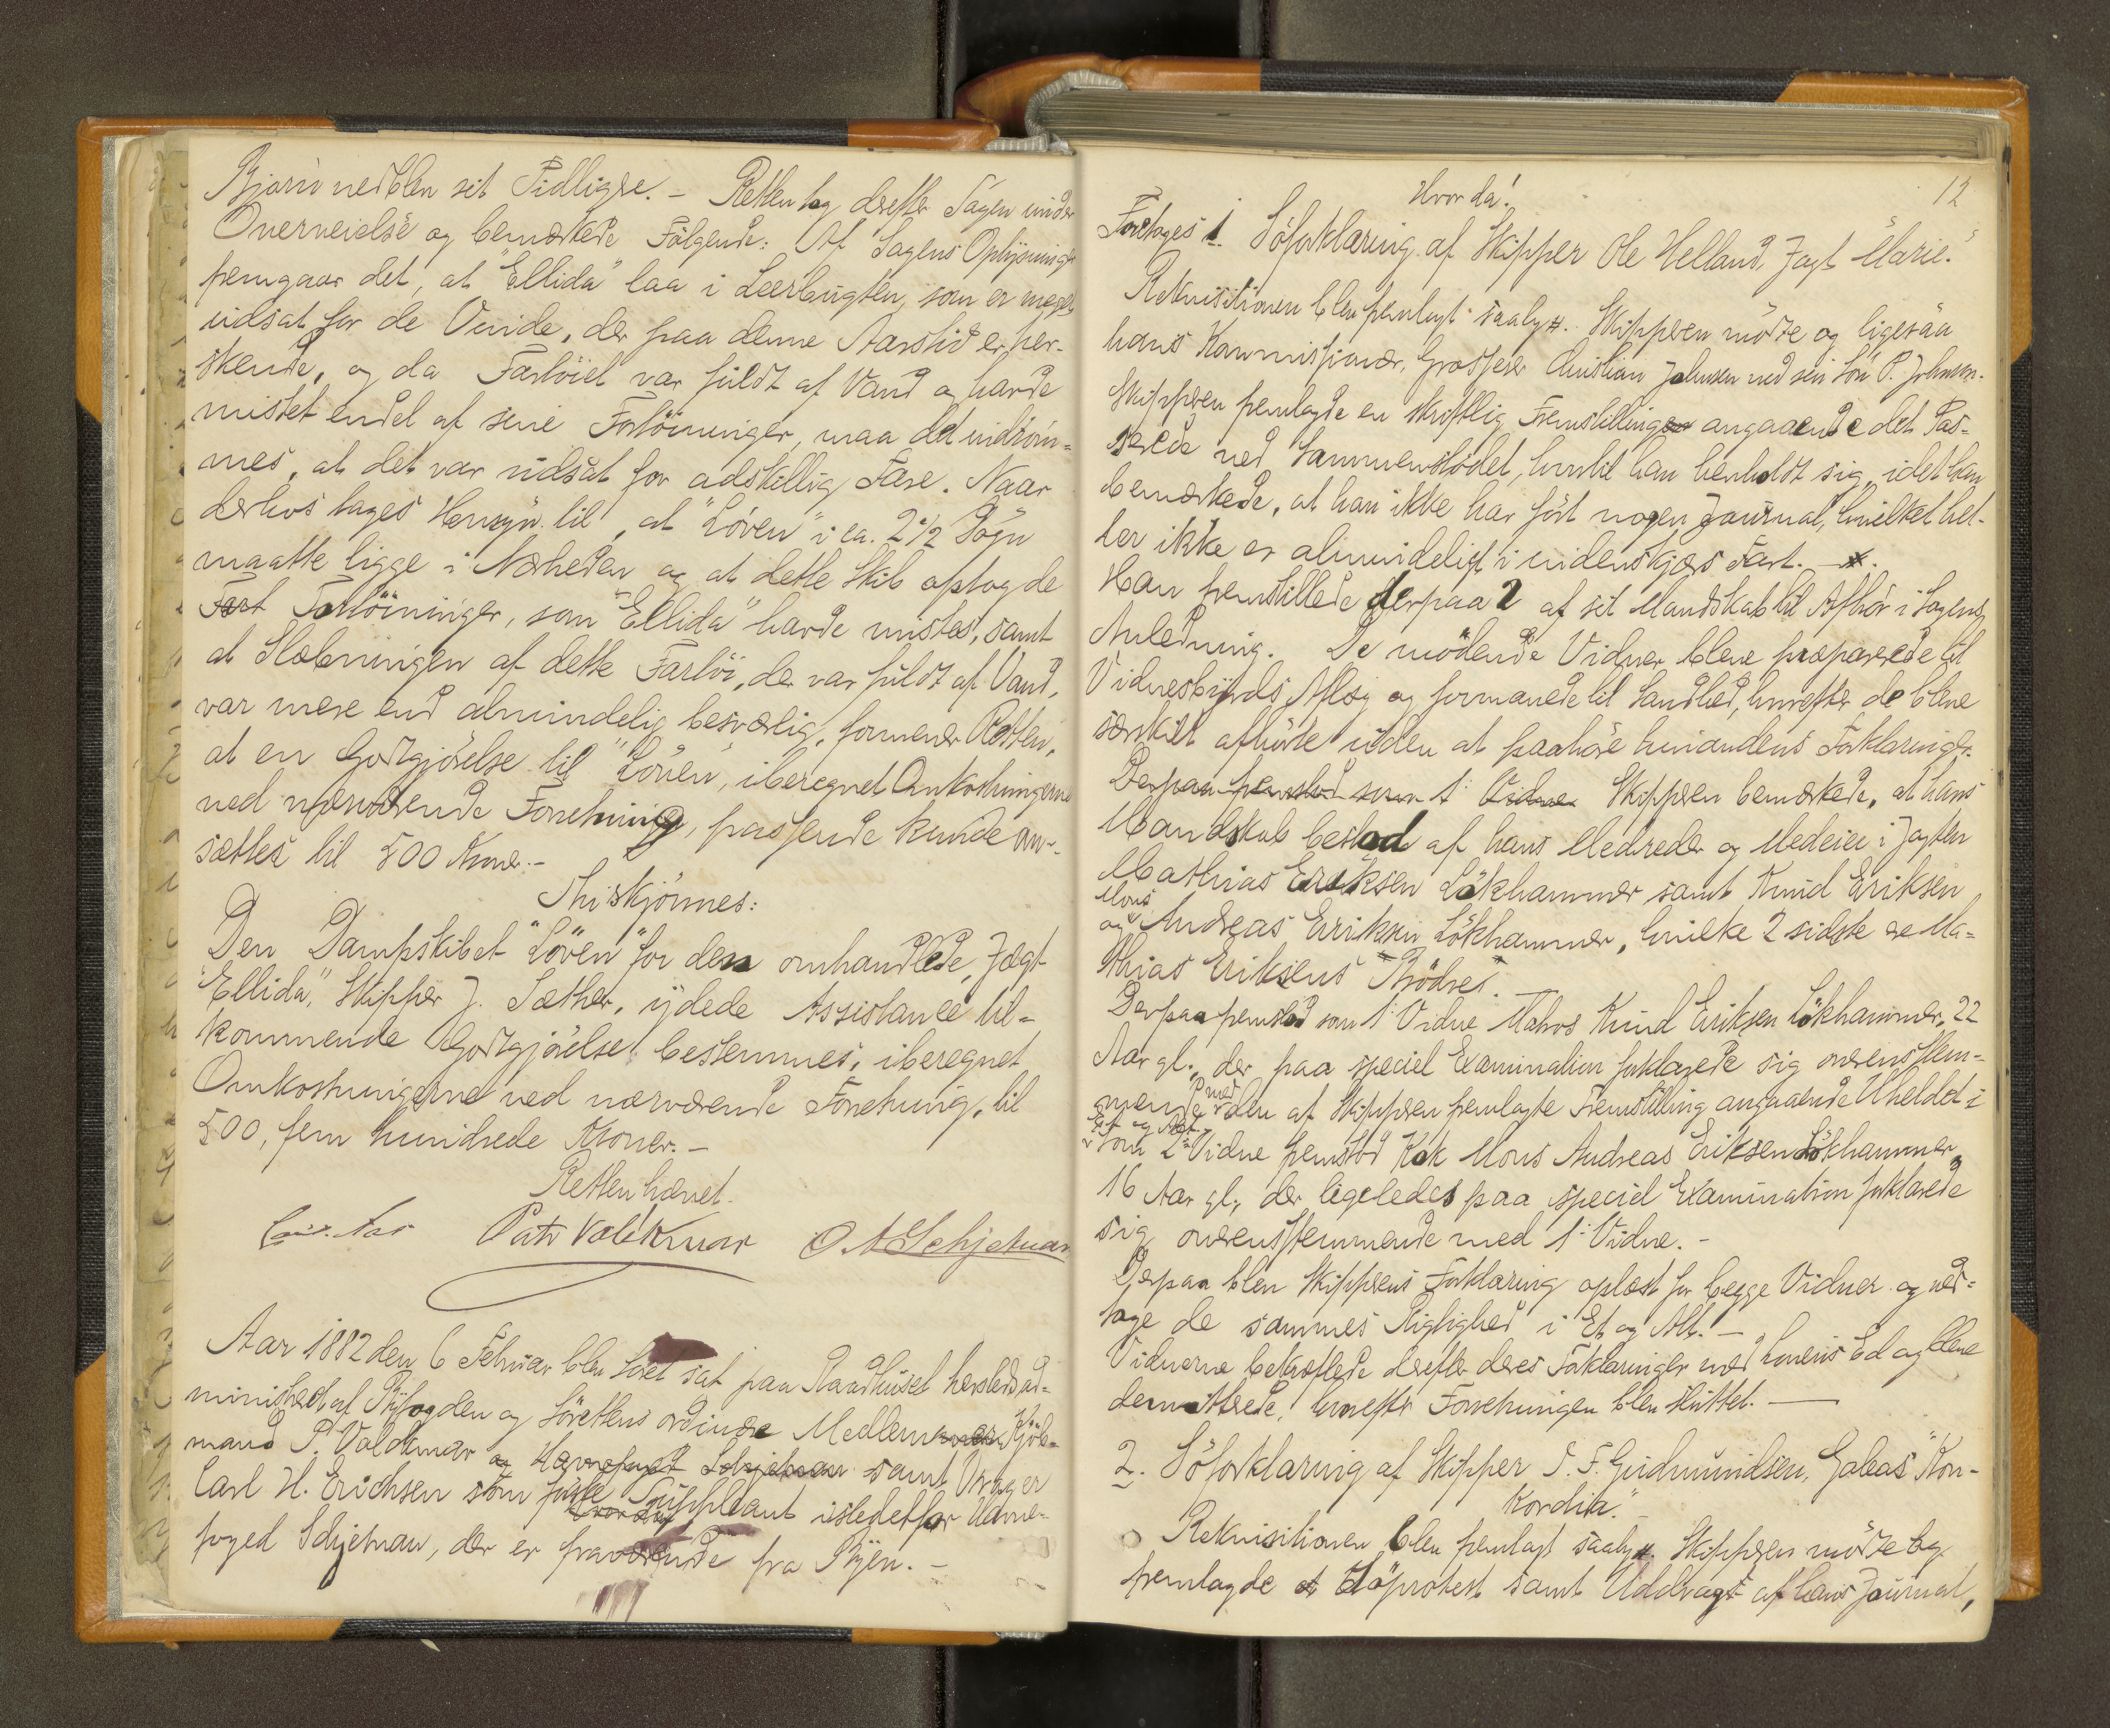 Bjørn vedblev sit Tidligere. – Retten tog derefter Sagen under
Overveielse og bemærkede Følgende: Af Sagens Oplysninger
fremgaar det, at "Ellida" laa i Leerbugten, som er meget
udsat for de Vinde, der paa denne Aarstid er her-
skende, og da Fartöiet var fuldt af Vand og havde
mistet endel af sine Fortöininger, maa det indröm-
mes, at det var udsat for adskillig Fare. Naar
derhos tages Hensyn til, at "Löven" i ca. 2 1/2 Dögn
maatte ligge i Nærheden og at dette Skib optog de
Fart Fortöininger, som "Ellida" havde mistet, samt
at Slæbningen af dette Fartöi, der var fuldt af Vand,
var mere end almindelig besværlig, formener Retten,
at en Godtgjörelse til "Löven", iberegnet Omkostningerne
ved nærværende Forretning, passende kunde an-
sættes til 500 Kroner. –
Thi skjönnes:
Den Dampskibet "Löven" for den omhandlede, Jægt
"Ellida", Skipper J. Sæther, ydede Assistance til-
kommende Godtgjörelse bestemmes, iberegnet
Omkostningerne ved nærværende Forretning, til
500, fem hundrede Kroner. –
Retten hævet.
Patr Volckmar O A Schjelnan
Aar 1882 den 6 Februar blev Søret sat paa Raadhuset hersteds ad-
ministreret af Byfogden og Sörettens ordinære Medlemmer Kjöb-
mand P. Volckmar og Havnefoged Schjelnan samt Vrager
Carl H. Erichsen som første Suppleant istedetfor Havne-
foged Schjelnan, der er fraværende fra Byen. –
12
Hvor da!
Foretages 1. Söforklaring af Skipper Ole Helland, Jagt "Marie."
Rekvisitionen blev fremlagt saalyd. Skipperen mödte og ligesaa
hans Kommissionær, Grosserer Christian Johnsen ved sin Søn P. Johnsen.
Skipperen fremlagde en skriftlig Fremstilling angaaende det Pas-
serede ved Sammenstödet, hvortil han henholdt sig, idet han
bemærkede, at han ikke har fört nogen Journal, hvilket hel-
ler ikke er almindeligt i indenskjærs Fart. –
Han fremstillede derpaa 2 af sit Mandskab til Afhör i Sagens
Anledning. De mödende Vidner bleve præparerede til
Vidnesbyrds Aflæg og formanede til Sandhed, hvorefter de bleve
særskilt afhörte uden at paahöre hinandens Forklaringer.
Derpaa fremstod som 1. Vidne Skipperen bemærkede, at hans
Mandskab bestod af hans Medreder og Medeier i Jagten
Mathias Eriksen Lökhammer samt Knud Eriksen
og Mons Andreas Eriksen Lökhammer, hvilke 2 sidste er Ma-
thias Eriksens Brödre.
Derpaa fremstod som 1. Vidne Matros Knud Eriksen Lökhammer, 22
Aar gl., der paa speciel Examination forklarede sig overensstem-
mende med den af Skipperen fremlagte Fremstilling angaaende Uheldet i
Et og Alt.
Som 2. Vidne fremstod Kok Mons Andreas Eriksen Lökhammer,
16 Aar gl., der ligeledes paa speciel Examination forklarede
sig overensstemmende med 1. Vidne. –
Derpaa blev Skipperens Forklaring oplæst for begge Vidner og ved-
toge de sammes Rigtighed i Et og Alt. –
Vidnerne bekræftede derefter deres Forklaringer med lovens Ed og bleve
demitterede, hvorefter Forretningen blev sluttet. –
2. Söforklaring af Skipper T. F. Gudmundsen, Galeas "Kon-
kordia."
Rekvisitionen blev fremlagt saalyd. Skipperen mödte og
fremlagde et Söprotest samt Uddragt af hans Journal,